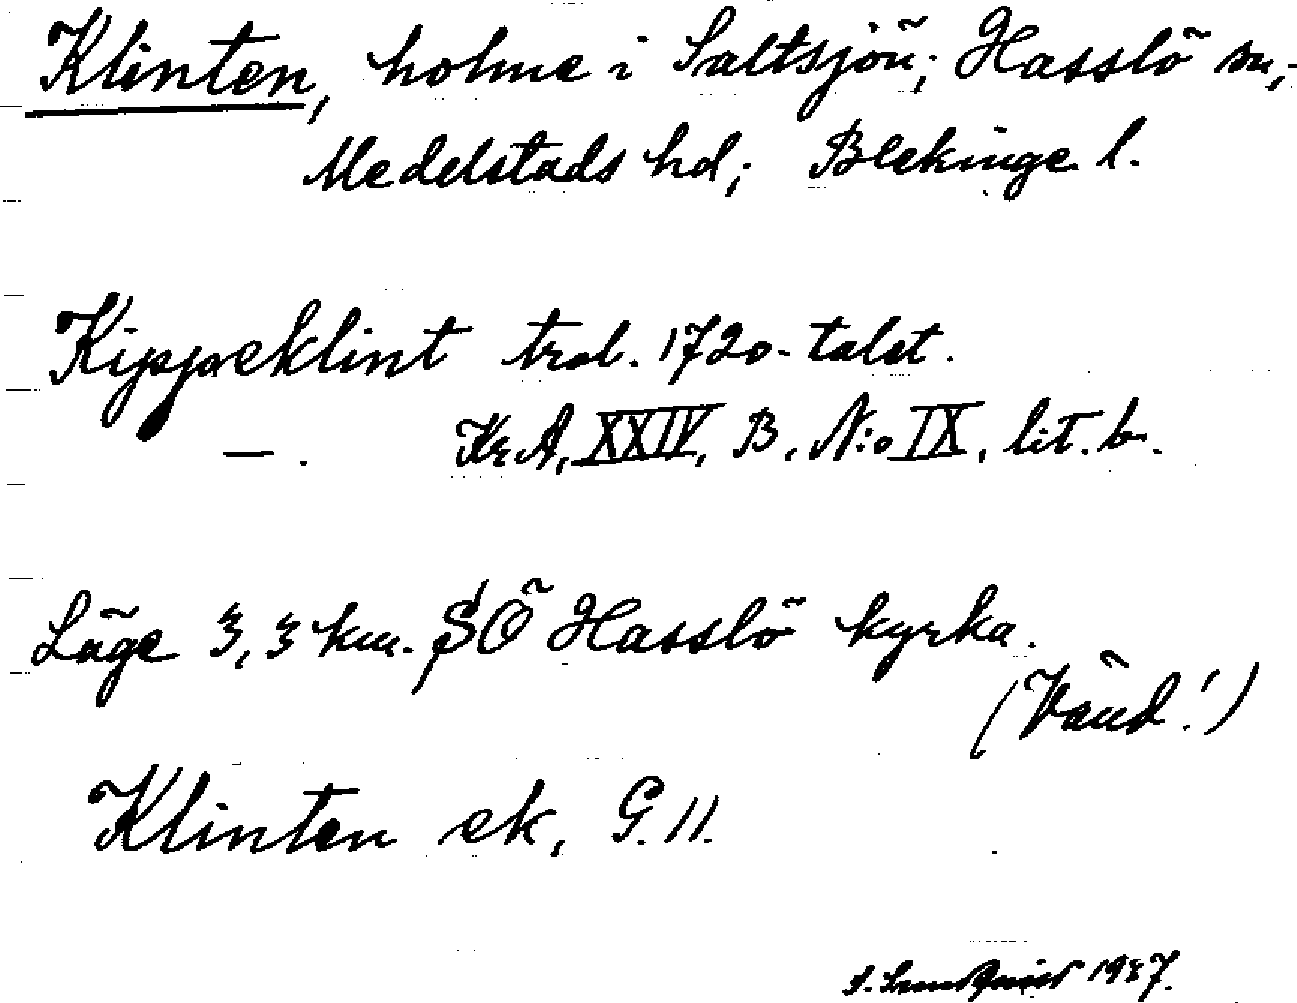 Klinten, holme i Saltsjön; Hasslö sn,
Medelstads hd; Blekinge l.
Kippeklint trol. 1720-talet.
— . Kr.A, XXIV, B. N:o IX, lit. b.
Läge 3,3 km. SÖ Hasslö kyrka.
(Vänd!)
Klinten ek, G.11.
1937.